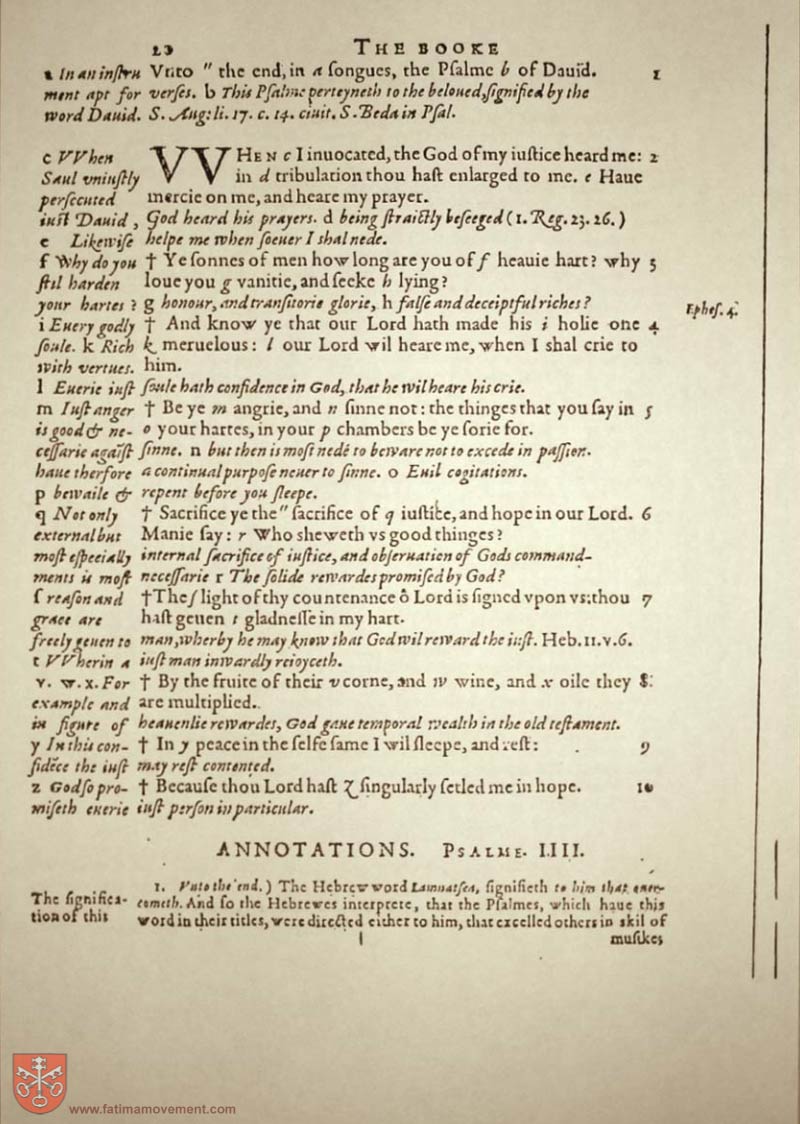 20 THE BOOKE
a In an inſtru Vnto " the end, in a ſongues, the Pſalme b of Dauid. 1
ment apt for verſes. b This Pſalme perteyneth to the beloued, ſignified by the
word Dauid. S. Aug: li. 17. c. 14. ciuit. S. Beda in Pſal.
c VVhen VVHEN c I inuocated, the God of my iuſtice heard me: 2
Saul vniuſtly in d tribulation thou haſt enlarged to me. e Haue
perſecuted mercie on me, and heare my prayer.
iuſt Dauid, God heard his prayers. d being ſtraictly beſeeged (1. Reg. 23. 26.)
e Likewiſe helpe me when ſoeuer I shal nede.
f Why do you † Ye ſonnes of men how long are you of f heauie hart? why 3
ſtil harden loue you g vanitie, and ſeeke h lying?
your hartes? g honour, and tranſitorie glorie, h falſe and deceiptful riches?
Epheſ. 4.
i Euery godly † And know ye that our Lord hath made his i holie one 4
ſoule. k Rich k meruelous: l our Lord wil heare me, when I shal crie to
with vertues. him.
l Euerie iuſt ſoule hath confidence in God, that he wil heare his crie.
m Iuſt anger † Be ye m angrie, and n ſinne not: the thinges that you ſay in 5
is good & ne- o your hartes, in your p chambers be ye ſorie for.
ceſſarie agaīſt ſinne. n but then is moſt nedé to beware not to excede in paſſion.
haue therfore a continual purpoſe neuer to ſinne. o Euil cogitations.
p bewaile & repent before you ſleepe.
q Not only † Sacrifice ye the " ſacrifice of q iuſtice, and hope in our Lord. 6
external but Manie ſay: r Who sheweth vs good thinges?
moſt eſpecially internal ſacrifice of iuſtice, and obſeruation of Gods command-
ments is moſt neceſſarie r The ſolide rewardes promiſed by God?
ſ reaſon and † The ſ light of thy countenance ô Lord is ſigned vpon vs: thou 7
grace are haſt geuen t gladneſſe in my hart.
freely geuen to man, wherby he may know that God wil reward the iuſt. Heb. 11. v. 6.
t VVherin a iuſt man inwardly reioyceth.
v. w. x. For † By the fruite of their v corne, and w wine, and x oile they 8
example and are multiplied.
in figure of heauenlie rewardes, God gaue temporal wealth in the old teſtament.
y In this con- † In y peace in the ſelfe ſame I wil ſleepe, and reſt: 9
fidēce the iuſt may reſt contented.
z God ſo pro- † Becauſe thou Lord haſt z ſingularly ſetled me in hope. 10
miſeth euerie iuſt perſon in particular.
ANNOTATIONS. PSALME. IIII.
1. Vnto the end.) The Hebrew word Lamnatſea, ſignifieth to him that ouer-
The ſignifica- cometh. And ſo the Hebrewes interprete, that the Pſalmes, which haue this
tion of this word in their titles, were directed either to him, that excelled others in skil of
muſikes
www.fatimamovement.com